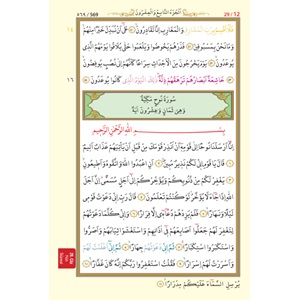 ٥٦٩ / 569 الجزء التاسع والعشرون 29 / 12
فَلَا أُقْسِمُ بِرَبِّ الْمَشَارِقِ وَالْمَغَارِبِ إِنَّا لَقَادِرُونَ عَلَى أَنْ نُبَدِّلَ خَيْرًا مِنْهُمْ
وَمَا نَحْنُ بِمَسْبُوقِينَ فَذَرْهُمْ يَخُوضُوا وَيَلْعَبُوا حَتَّى يُلَاقُوا يَوْمَهُمُ الَّذِي
يُوعَدُونَ يَوْمَ يَخْرُجُونَ مِنَ الْأَجْدَاثِ سِرَاعًا كَأَنَّهُمْ إِلَى نُصُبٍ يُوفِضُونَ
خَاشِعَةً أَبْصَارُهُمْ تَرْهَقُهُمْ ذِلَّةٌ ذَلِكَ الْيَوْمُ الَّذِي كَانُوا يُوعَدُونَ
سُورَةُ نُوحٍ مَكِّيَّةٌ
وَهِيَ ثَمَانٍ وَعِشْرُونَ آيَةً
بِسْمِ اللهِ الرَّحْمٰنِ الرَّحِيمِ
إِنَّا أَرْسَلْنَا نُوحًا إِلَى قَوْمِهِ أَنْ أَنْذِرْ قَوْمَكَ مِنْ قَبْلِ أَنْ يَأْتِيَهُمْ عَذَابٌ أَلِيمٌ
قَالَ يَا قَوْمِ إِنِّي لَكُمْ نَذِيرٌ مُبِينٌ أَنِ اعْبُدُوا اللهَ وَاتَّقُوهُ وَأَطِيعُونِ
يَغْفِرْ لَكُمْ مِنْ ذُنُوبِكُمْ وَيُؤَخِّرْكُمْ إِلَى أَجَلٍ مُسَمًّى إِنَّ أَجَلَ
اللهِ إِذَا جَاءَ لَا يُؤَخَّرُ لَوْ كُنْتُمْ تَعْلَمُونَ قَالَ رَبِّ إِنِّي دَعَوْتُ قَوْمِي
لَيْلًا وَنَهَارًا فَلَمْ يَزِدْهُمْ دُعَائِي إِلَّا فِرَارًا وَإِنِّي كُلَّمَا دَعَوْتُهُمْ
لِتَغْفِرَ لَهُمْ جَعَلُوا أَصَابِعَهُمْ فِي آذَانِهِمْ وَاسْتَغْشَوْا ثِيَابَهُمْ وَأَصَرُّوا
وَاسْتَكْبَرُوا اسْتِكْبَارًا ثُمَّ إِنِّي دَعَوْتُهُمْ جِهَارًا ثُمَّ إِنِّي أَعْلَنْتُ لَهُمْ
وَأَسْرَرْتُ لَهُمْ إِسْرَارًا فَقُلْتُ اسْتَغْفِرُوا رَبَّكُمْ إِنَّهُ كَانَ غَفَّارًا
يُرْسِلِ السَّمَاءَ عَلَيْكُمْ مِدْرَارًا